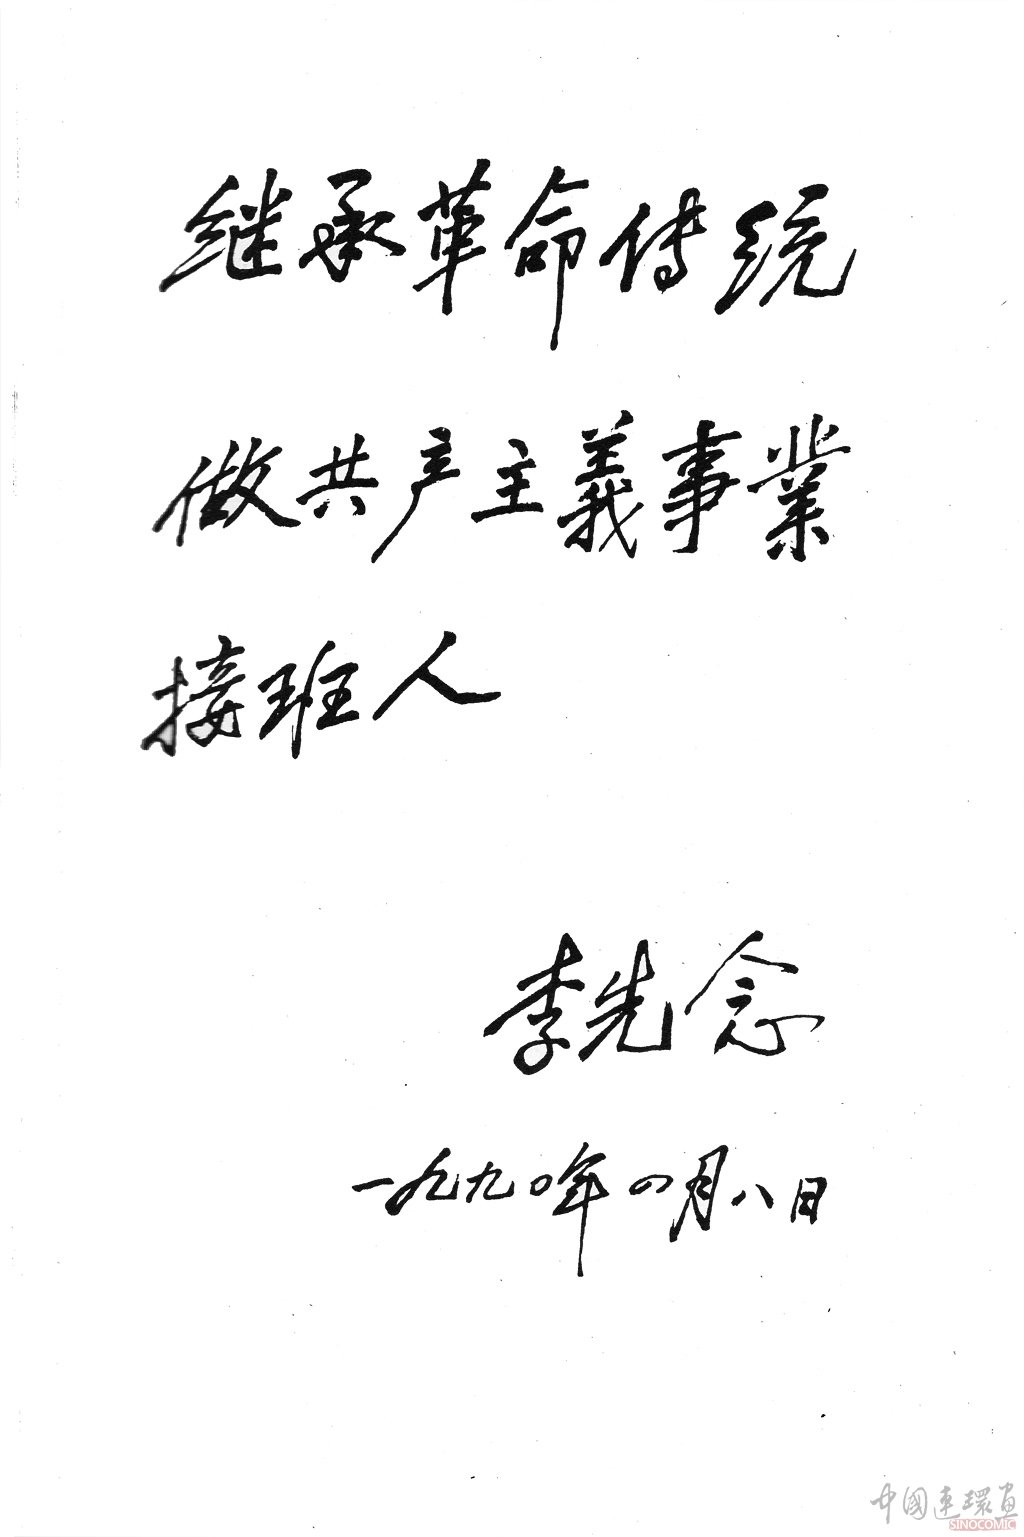 继承革命传统
做共产主義事業
接班人
李先念
一九九〇年四月八日
中國連環画
SINOCOMIC